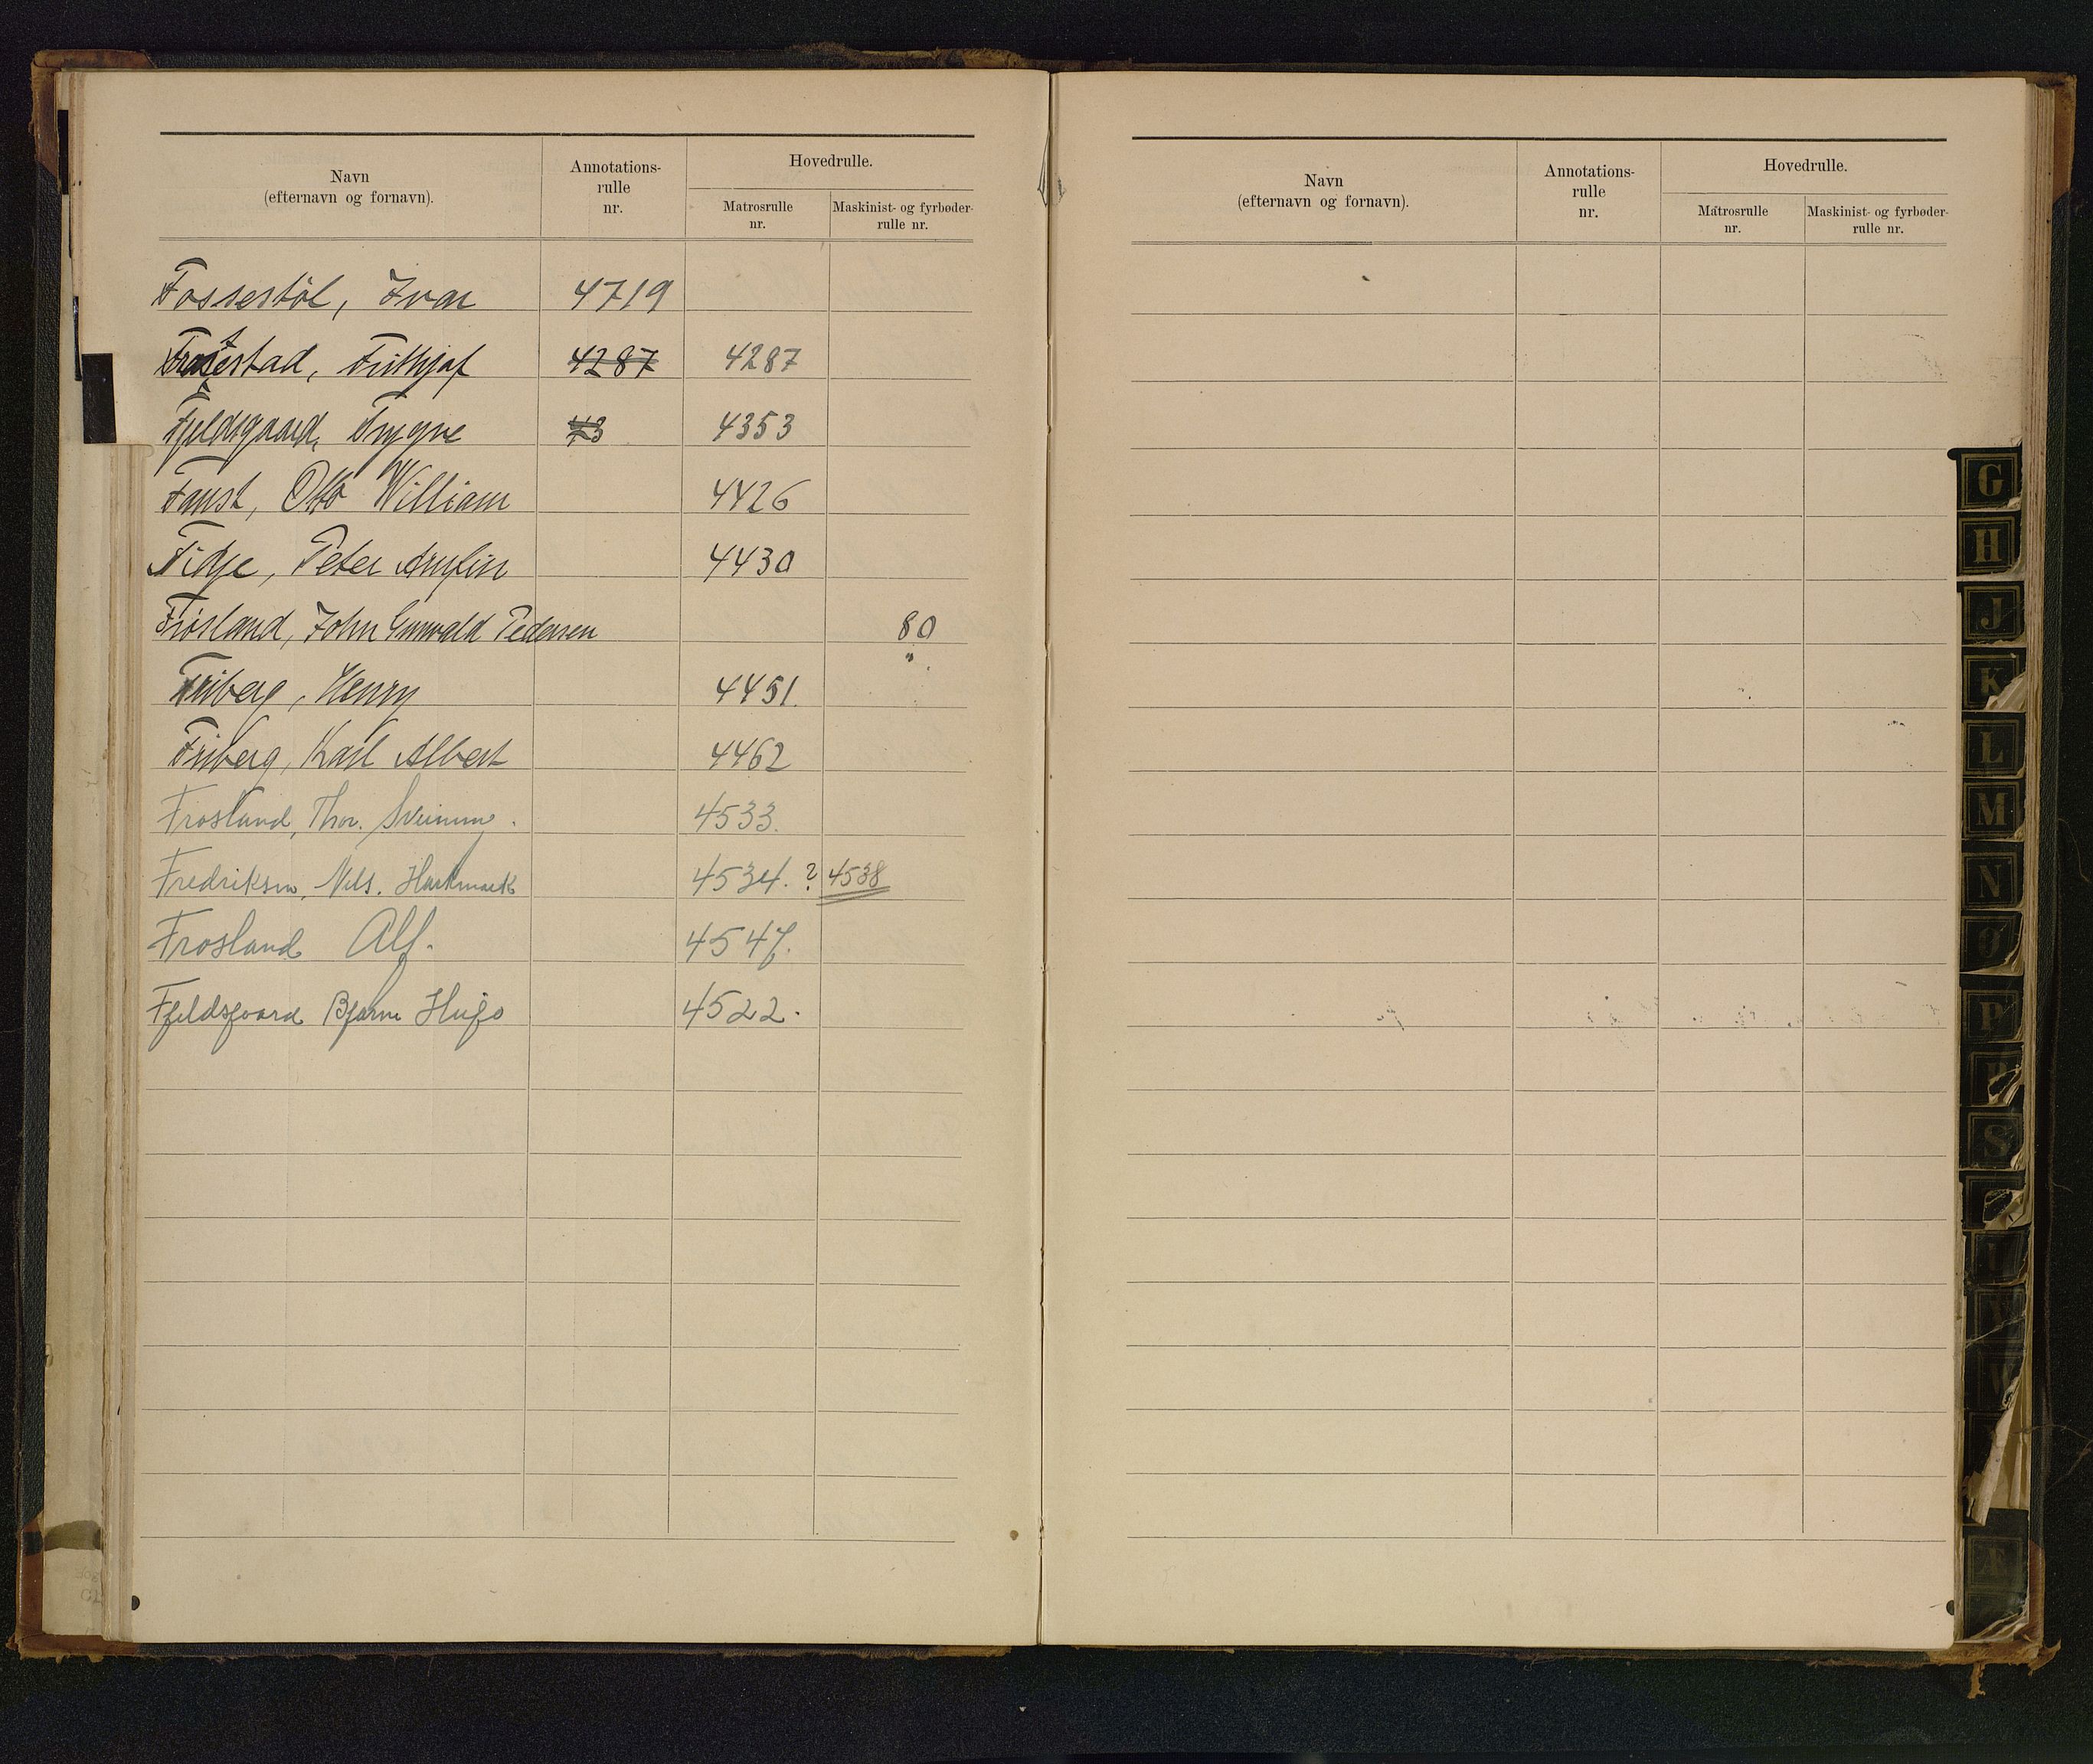 Navn
(efternavn og fornavn).
Annotations-
rulle
nr.
Hovedrulle.
Matrosrulle
nr.
Maskinist- og fyrbøder-
rulle nr.
Fossestöl, Ivar 4719
Frithjof 4287 4287
Fjeldsgaard, Trygve 73 4353
Faust, Otto William 4426
Fidje, Peter Arnfin 4430
Frösland, John Gunvald Pedersen 80
Friberg, Henry 4451.
Friberg, Karl Albert 4462
Frosland, Thor. 4533.
Fredriksen, Nils. Harkmark 4534. ? 4538
Frosland Alf. 4547.
Fjeldsgaard Bjarne Hugo 4522.
Navn
(efternavn og fornavn).
Annotations-
rulle
nr.
Hovedrulle.
Matrosrulle
nr.
Maskinist- og fyrbøder-
rulle nr.
G
H
J
K
L
M
N
O
P
R
S
V
W
Æ